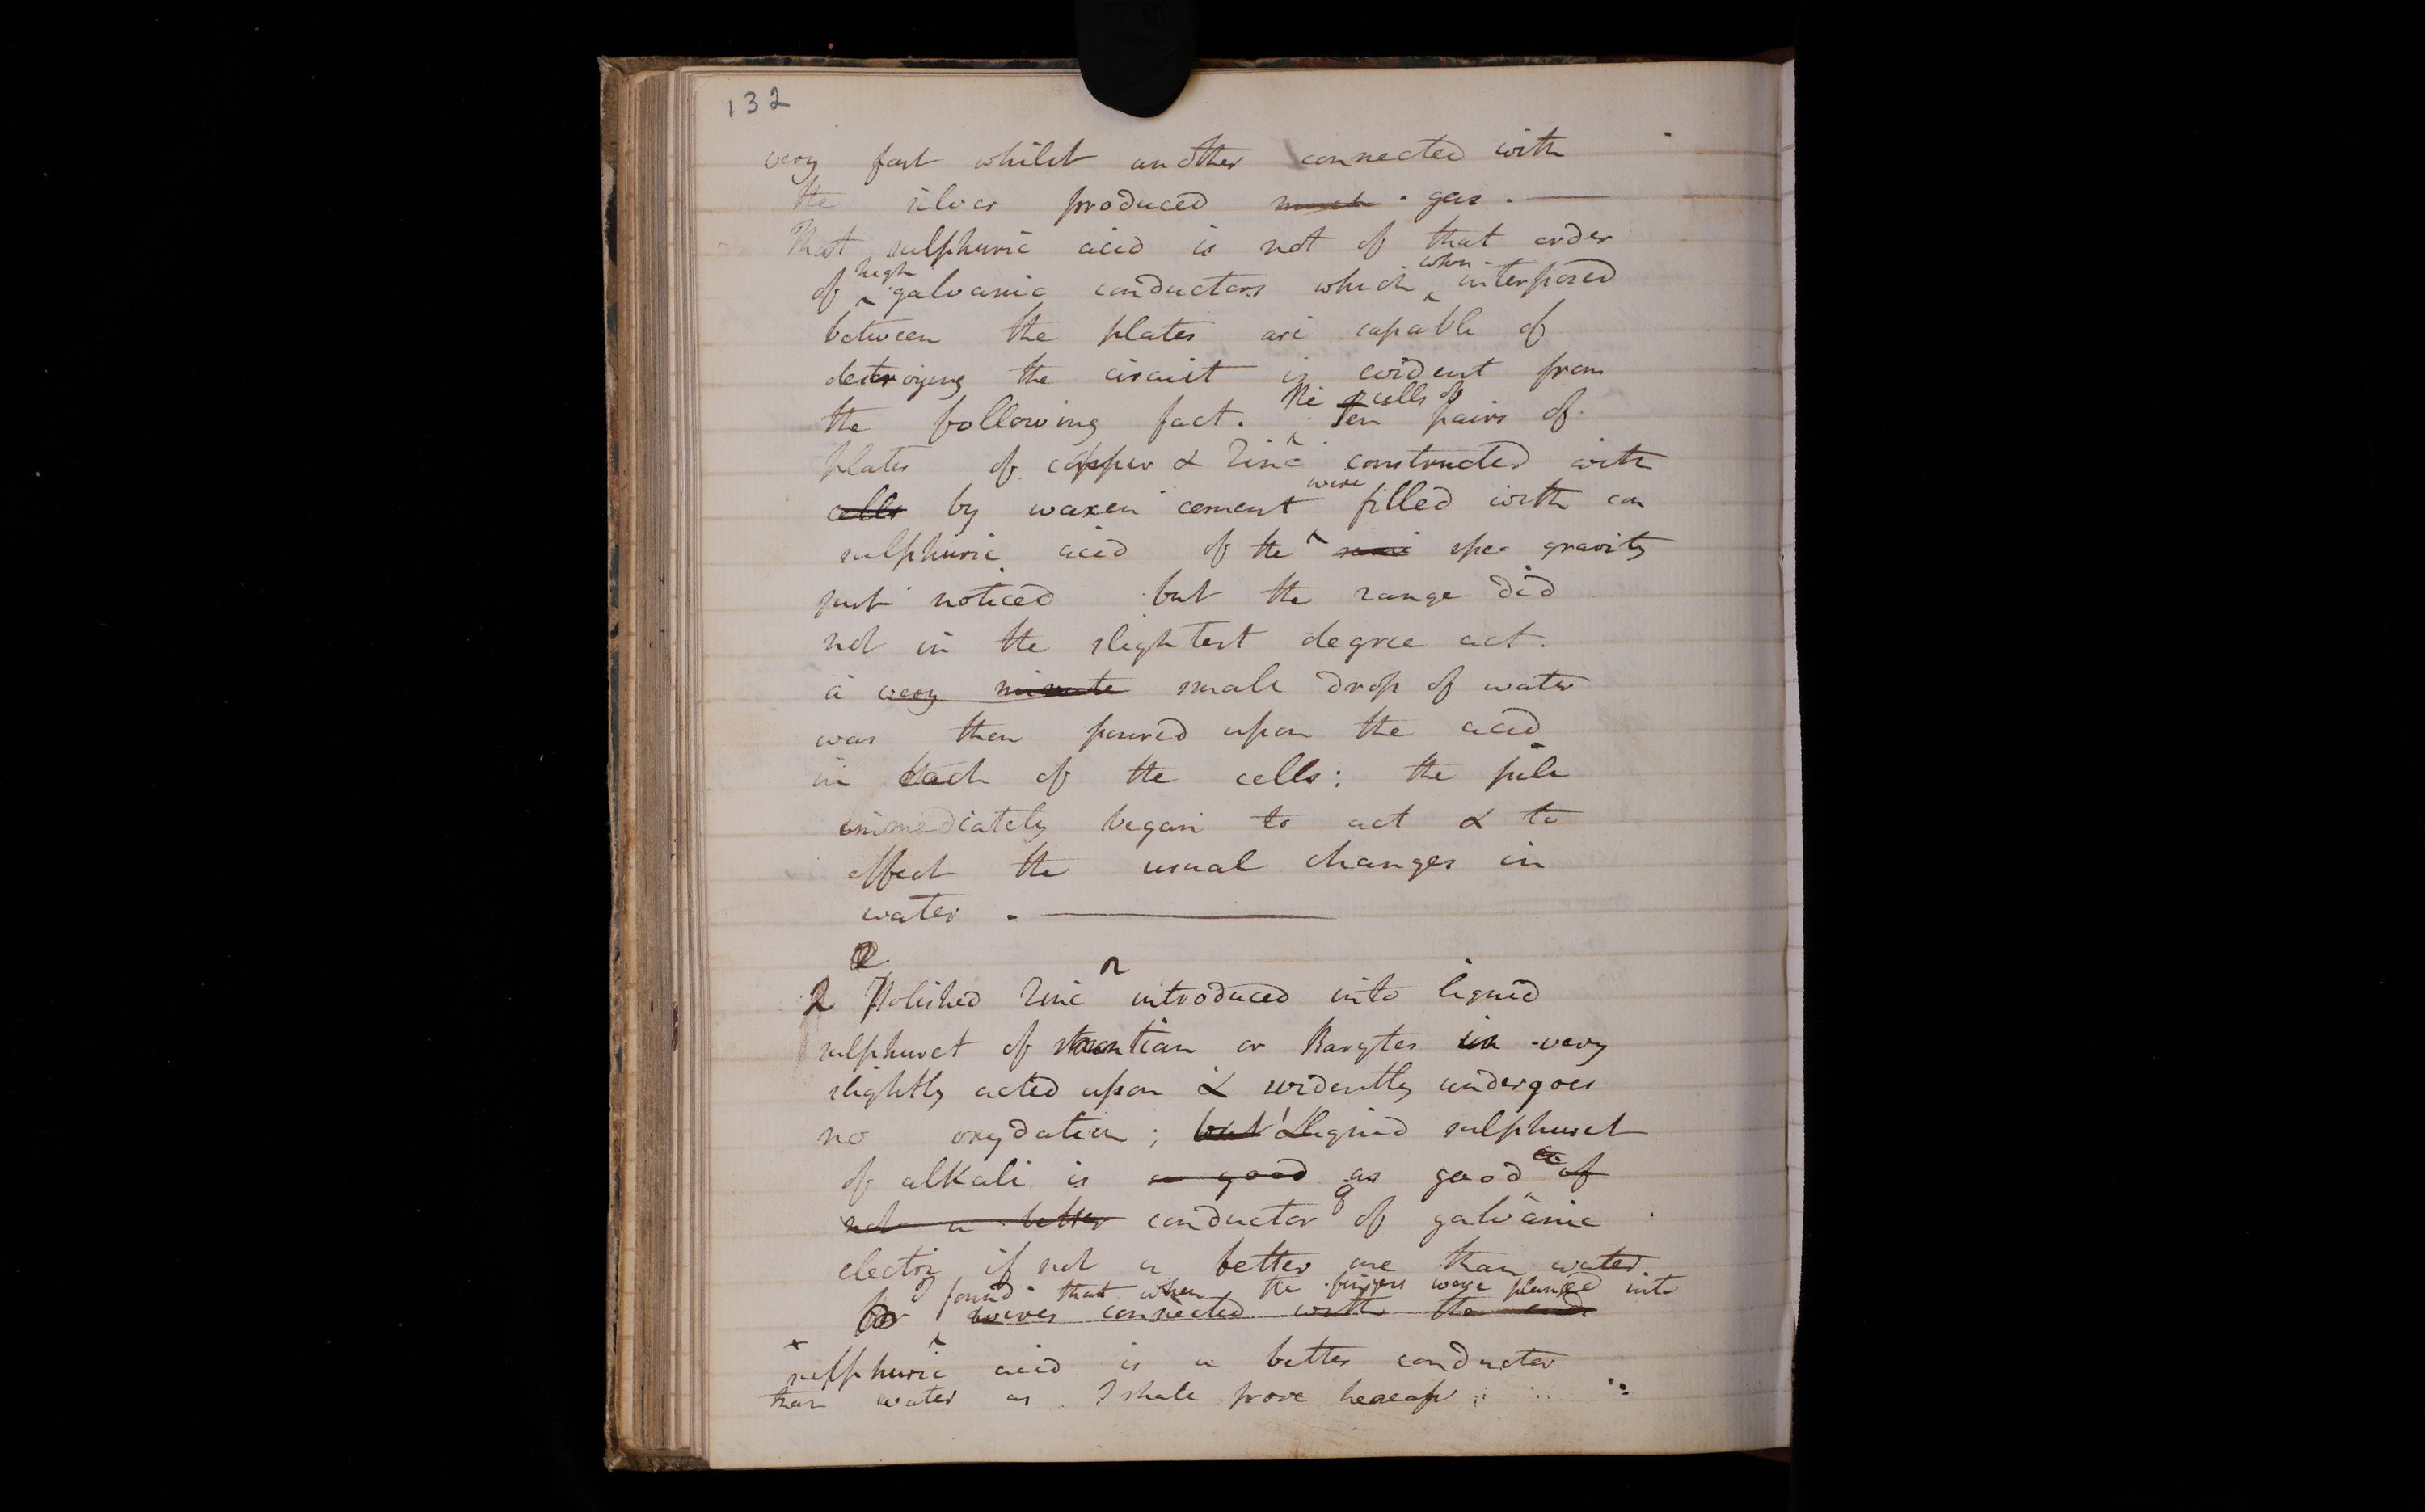 132
very fast whilst another connected with
the silver produced much gas. —
That sulphuric acid is not of that order
of high galvanic conductors which when interposed
between the plates are capable of
destroying the circuit is evident from
the following fact. The cells of Ten pairs of
plates of copper & Zinc constructed with
cells by waxen cement were filled with con
sulphuric acid of the same spec gravity
just noticed but the range did
not in the slightest degree act.
a very minute small drop of water
was then poured upon the acid
in each of the cells: the pile
immediately began to act & to
effect the usual changes in
water. —
2 Polished Zinc introduced into liquid
sulphuret of strontian or Barytes is very
slightly acted upon & evidently undergoes
no oxydation; but liquid sulphuret
of alkali is a good as good a of
not a better conductor of galvanic
electri if not a better one than water.
for I found that when the fingers were plunged into
wires connected with the ends
x sulphuric acid is a better conductor
than water as I shall prove hereaf